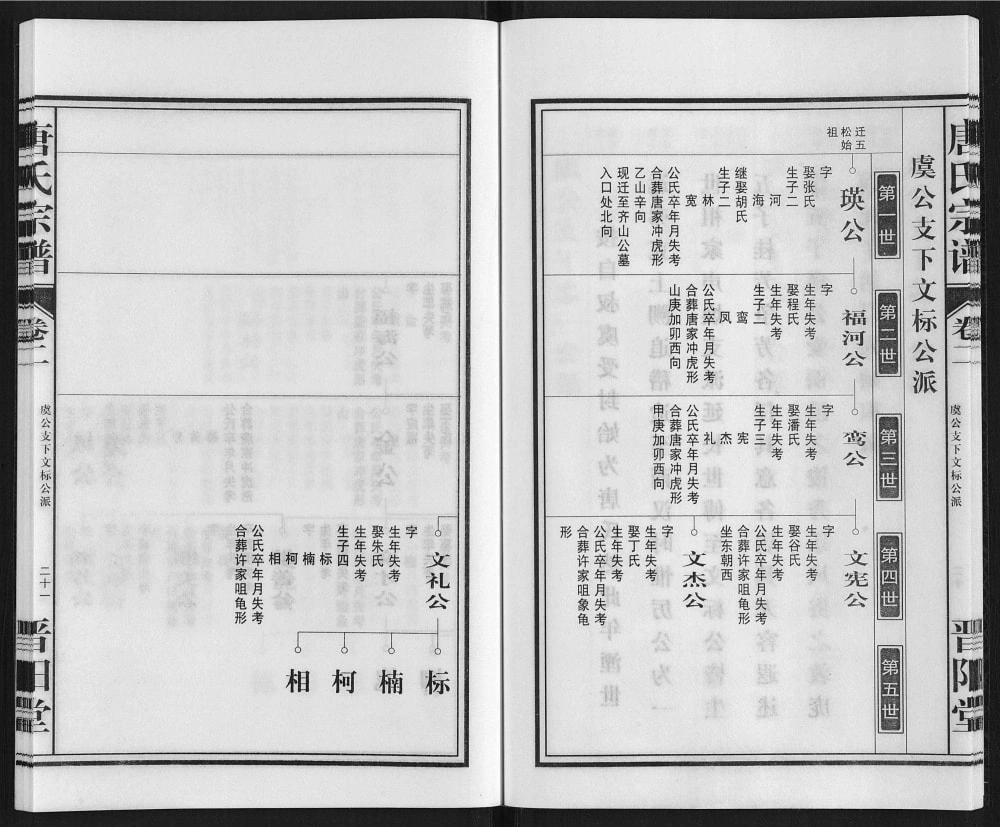 唐氏宗谱
卷二
虞公支下文标公派
晋阳堂
虞公支下文标公派
第一世
第二世
第三世
第四世
第五世
迁五
松始
祖
瑛公
字
娶张氏
生子二
河
海
继娶胡氏
生子二
林
宽
公氏卒年月失考
合葬唐家冲虎形
乙山辛向
现迁至齐山公墓
入口处北向
福河公
字
生年失考
娶程氏
生年失考
生子二
鸾
凤
公氏卒年月失考
合葬唐家冲虎形
山庚加卯西向
鸾公
字
生年失考
娶潘氏
生年失考
生子三
宪
杰
礼
公氏卒年月失考
合葬唐家冲虎形
甲庚加卯西向
文宪公
字
生年失考
娶谷氏
生年失考
公氏卒年月失考
合葬许家咀龟形
坐东朝西
文杰公
字
生年失考
娶丁氏
生年失考
公氏卒年月失考
合葬许家咀象龟
形
文礼公
字
生年失考
娶朱氏
生年失考
生子四
标
楠
柯
相
公氏卒年月失考
合葬许家咀龟形
标
楠
柯
相
唐氏宗谱
卷二
虞公支下文标公派
二十一
晋阳堂